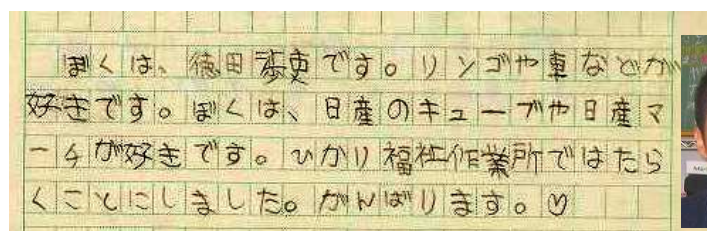 ぼくは、徳田歩吏です。リンゴや車などが
好きです。ぼくは、日産のキューブや日産マ
ーチが好きです。ひかり福祉作業所ではたら
くことにしました。がんばります。♡